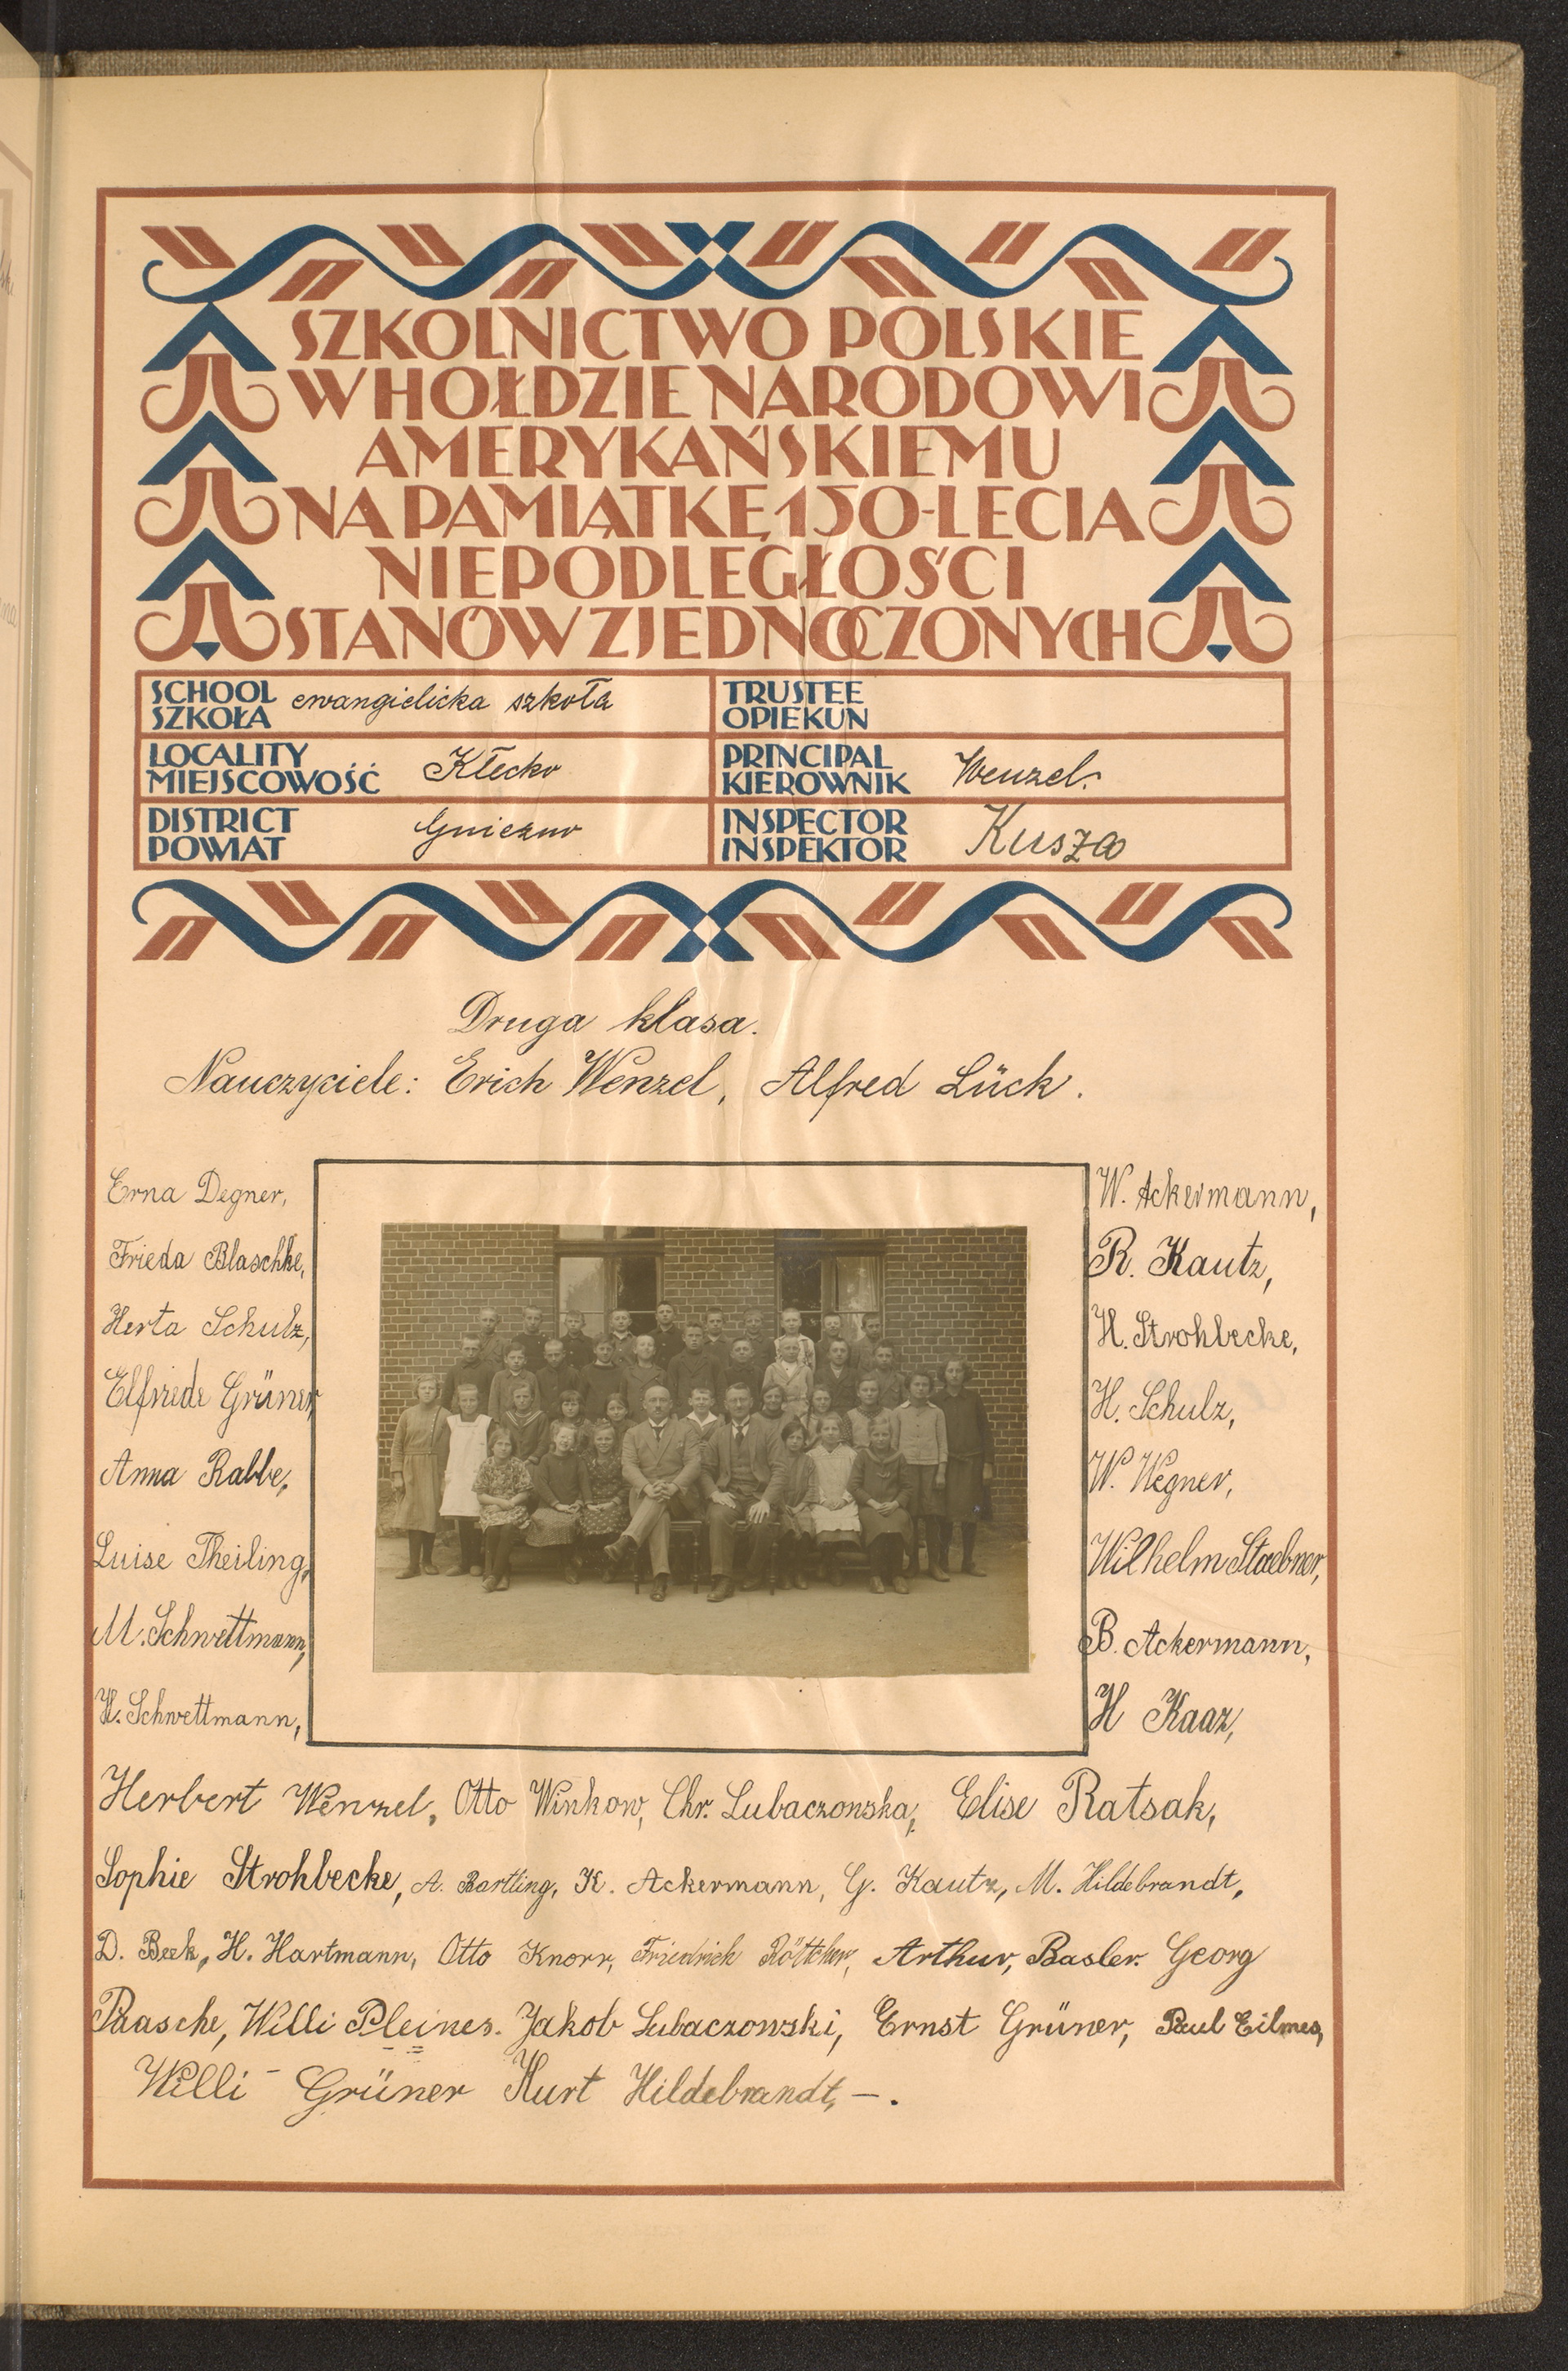 SZKOLNICTWO POLSKIE
W HOŁDZIE NARODOWI
AMERYKAŃSKIEMU
NA PAMIĄTKĘ 150-LECIA
NIEPODLEGŁOŚCI
STANÓW ZJEDNOCZONYCH
SCHOOL
SZKOŁA
ewangielicka szkoła
TRUSTEE
OPIEKUN
LOCALITY
MIEJSCOWOŚĆ
Kłecko
PRINCIPAL
KIEROWNIK
Wenzel.
DISTRICT
POWIAT
Gniezno
INSPECTOR
INSPEKTOR
Kusza
Druga klasa.
Nauczyciele: Erich Wenzel, Alfred Lück.
Erna Degner,
Frieda Blaschke,
Herta Schulz,
Elfriede Grüner
Anna Rabbe,
Luise Theiling,
M. Schwettmann,
H. Schwettmann,
W. Ackermann,
R. Kautz,
H. Strohbecke,
H. Schulz,
W. Wegner,
Wilhelm Staebner,
B. Ackermann,
H Kaaz,
Herbert Wenzel, Otto Winkow, Chr. Lubaczonska, Elise Ratsak,
Sophie Strohbecke, A. Bartling, K. Ackermann, G. Kautz, M. Hildebrandt,
D. Beek, H. Hartmann, Otto Knorr, Friedrich Röttcher, Arthur, Basler. Georg
Paasche, Willi Pleines. Jakob Lubaczowski, Ernst Grüner, Paul Eilmes,
Willi - Grüner Kurt Hildebrandt, - .